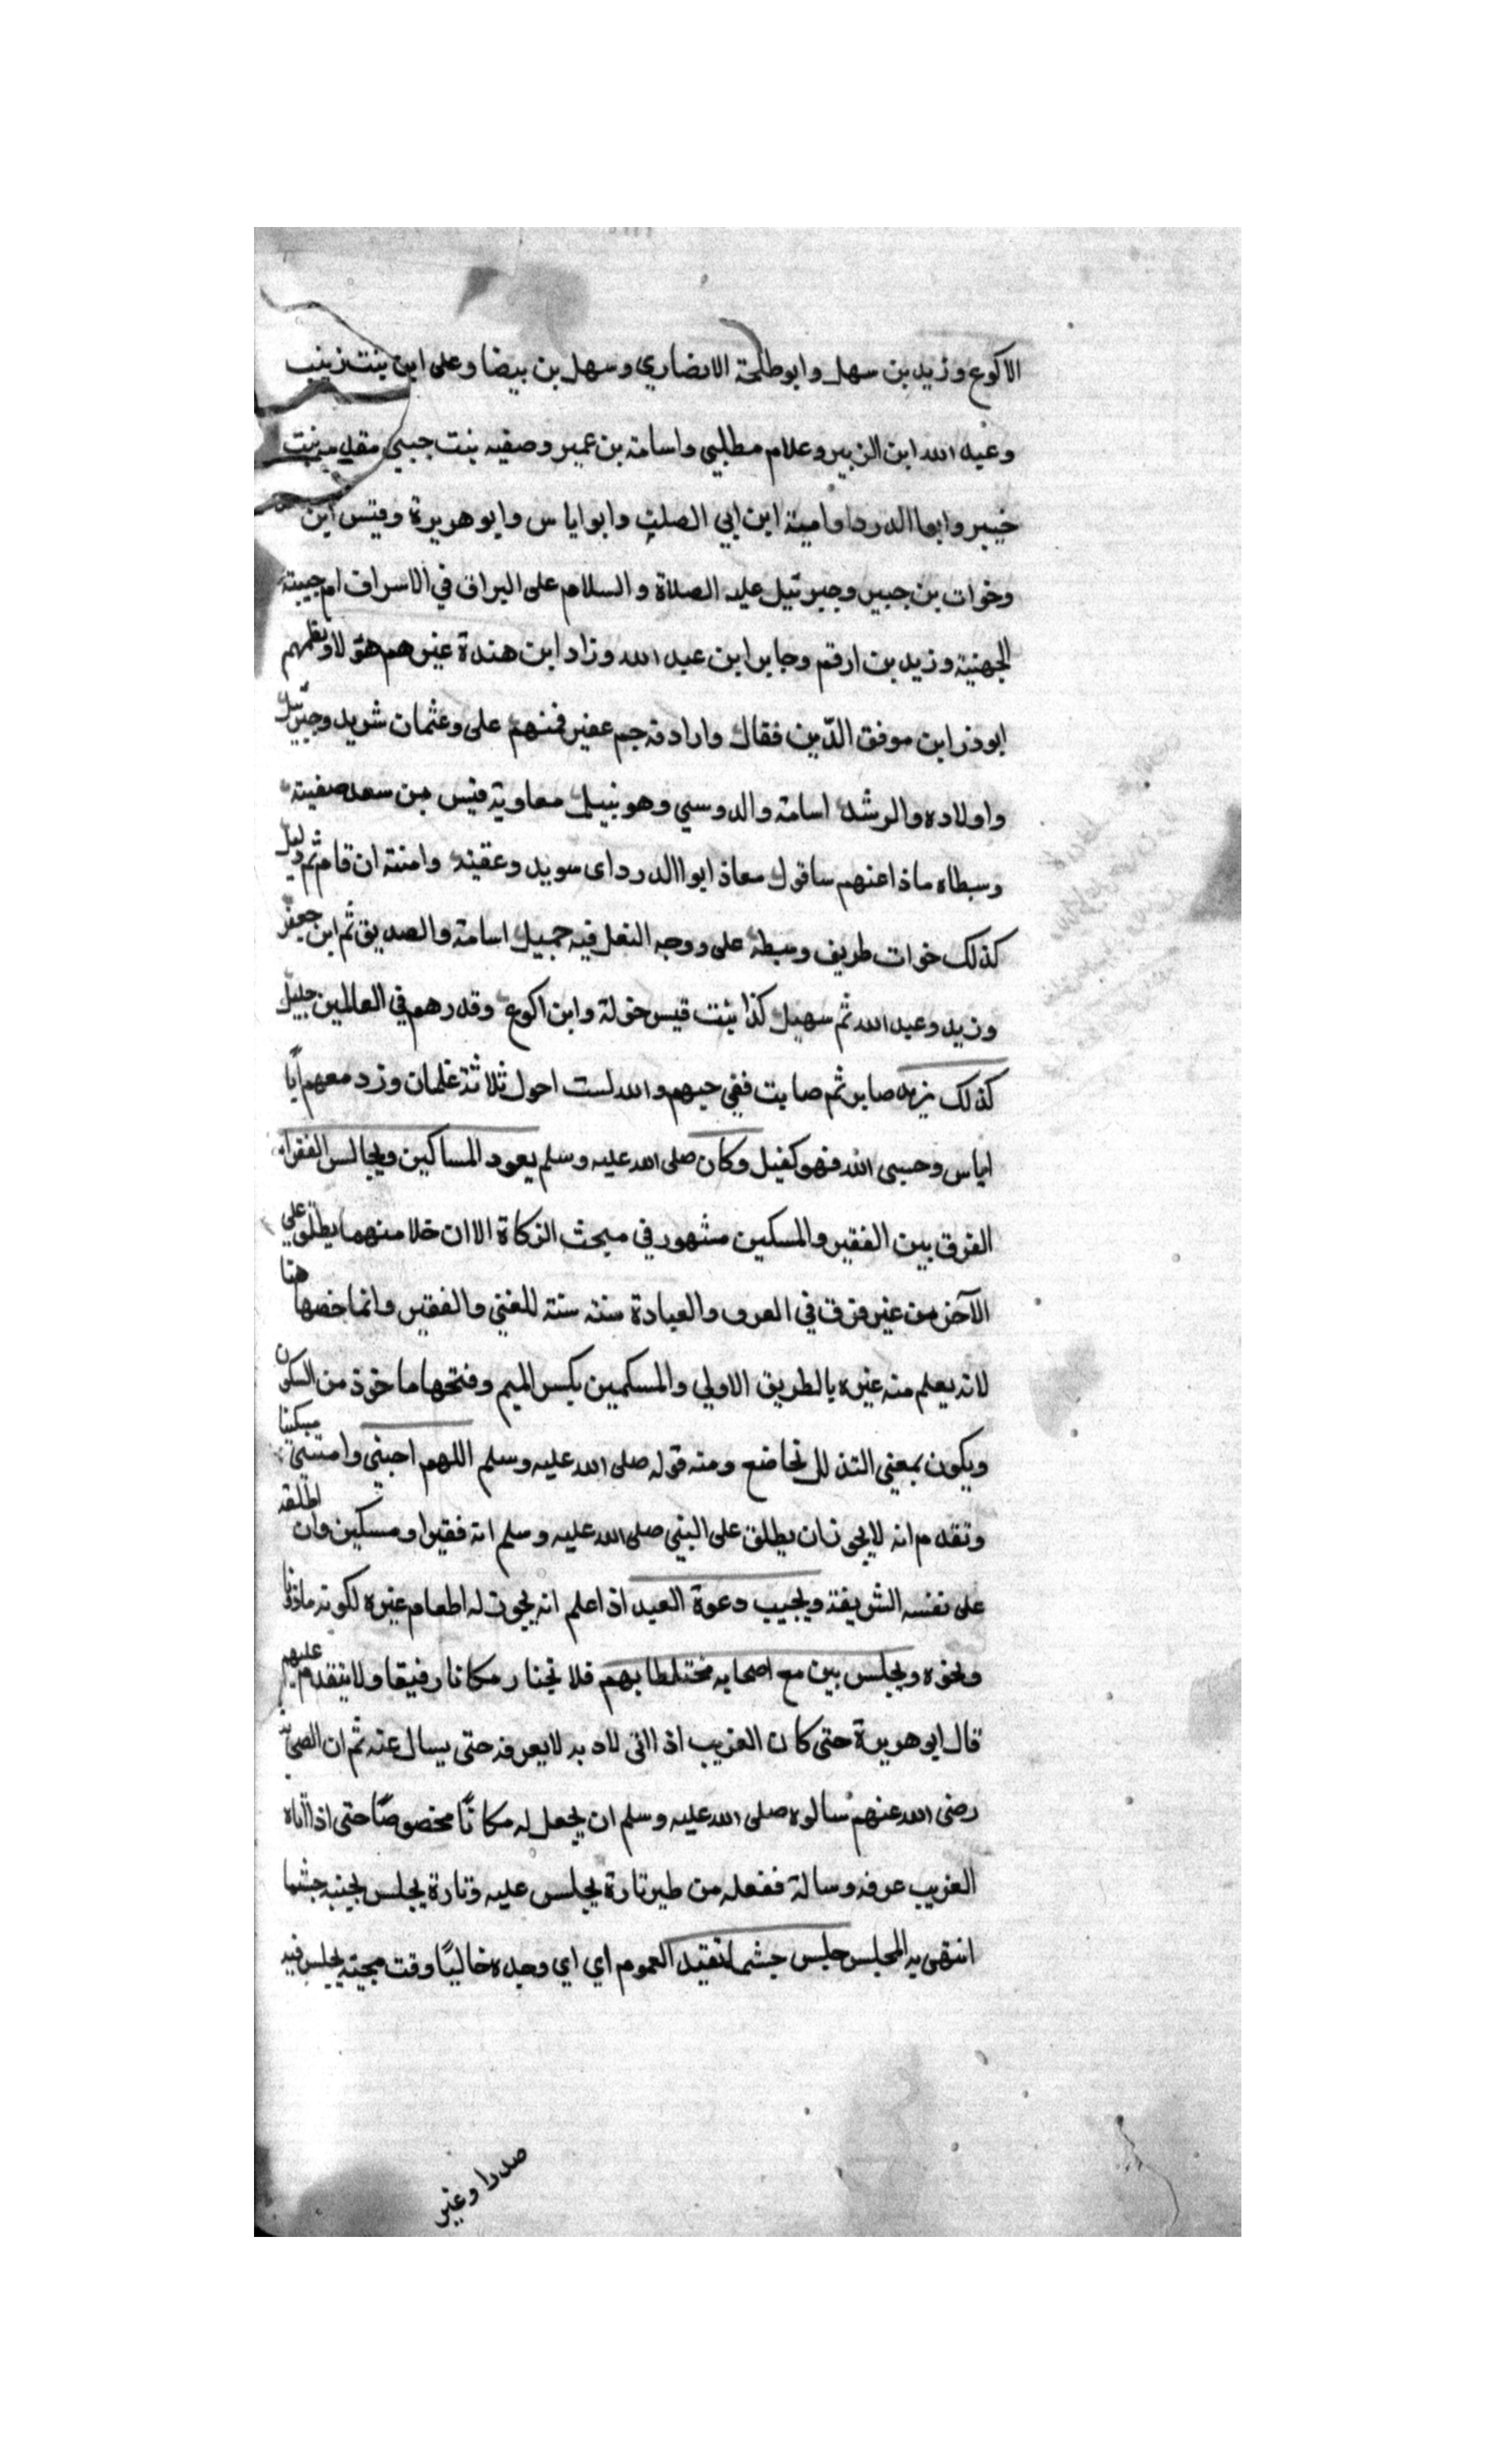 الاكوع وزيد بن سهل وابو طلحة الانصاري وسهل بن بيضا وعلى ابن بنت زينب
وعبد الله ابن الزبير وغلام مطلبي واسامة بن عمير وصفيه بنت جيبي بنت
خيبر وابوا الدردا وامية ابن ابي الصلت وابو اياس وابو هريرة وقيس ابن
وخوات بن جبير وجبرئيل عليه الصلاة والسلام على البراق في الاسراف ام حبيبة
الجهنية وزيد بن ارقم وجابر ابن عبد الله وزاد ابن هندة غيرهم هؤلا ونظمهم
ابوذر ابن موفق الدّين فقال وارادفه جم غفير فمنهم على وعثمان شريد وجبرئيل
واولاده والرشد اسامة والدوسي وهو نبيل معاوية قيس بن سعد صفية
وسبطاه ماذا عنهم ساقول معاذ ابوا الدرداى سويد وعقبة وامنة ان قام ثم دليل
كذلك خوات طريف وسبطه على ووجه النقل فيه جميل اسامة والصديق ثم ابن جعفر
وزيد وعبد الله ثم سهيل كذا بنت قيس خولة وابن اكوع وقدرهم في العالمين جليل
كذلك زيد صابر ثم صابت ففي حبهم والله لست احول ثلاثة غلمان وزد معهم ابا
اياس وحسبى الله فهو كفيل وكان صلى الله عليه وسلم يعود المساكين ويجالس الفقراء
الفرق بين الفقير والمسكين مشهور في مبحث الزكاة الا ان خلا منهما يطلق على
الآخر من غير فرق في العرف والعيادة سنه سنة للغني والفقير وانما خصها هنا
لانه يعلم منه غيره بالطريق الاولي والمسكمين بكسر الميم وفتحها ماخوذ من السكون
ويكون بمعنى التذلل تخاضع ومنه قوله صلى الله عليه وسلم اللهم احيني وامتني مسكينا
وتقدم انه لا يجوز ان يطلق على النبي صلى الله عليه وسلم انه فقيرا ومسكين وان اطلقه
على نفسه الشريفة ويجيب دعوة العبد اذا علم انه يجوز له اطعام غيره لكونه ماذونا
ونحوه ويجلس بين مع اصحابه مختلطا بهم فلا تجنار مكانا رفيقا ولا يتقدم عليهم
قال ابو هريرة حتى كان الغريب اذا اتى لاد به لا يعرفه حتى يسال عنه ثم ان الصحابة
رضى الله عنهم سالوه صلى الله عليه وسلم ان يجعل له مكانًا مخصوصًا حتى اذا اتاه
الغريب عرفه وسالة ففعله من طير تارة يجلس عليه وتارة يجلس بجنبه حيثما
انتهى به المجلس جلس حيثما تفيد العموم اي اي وجده خاليًا وقت مجيئه يجلس فيه
صدرا وغير